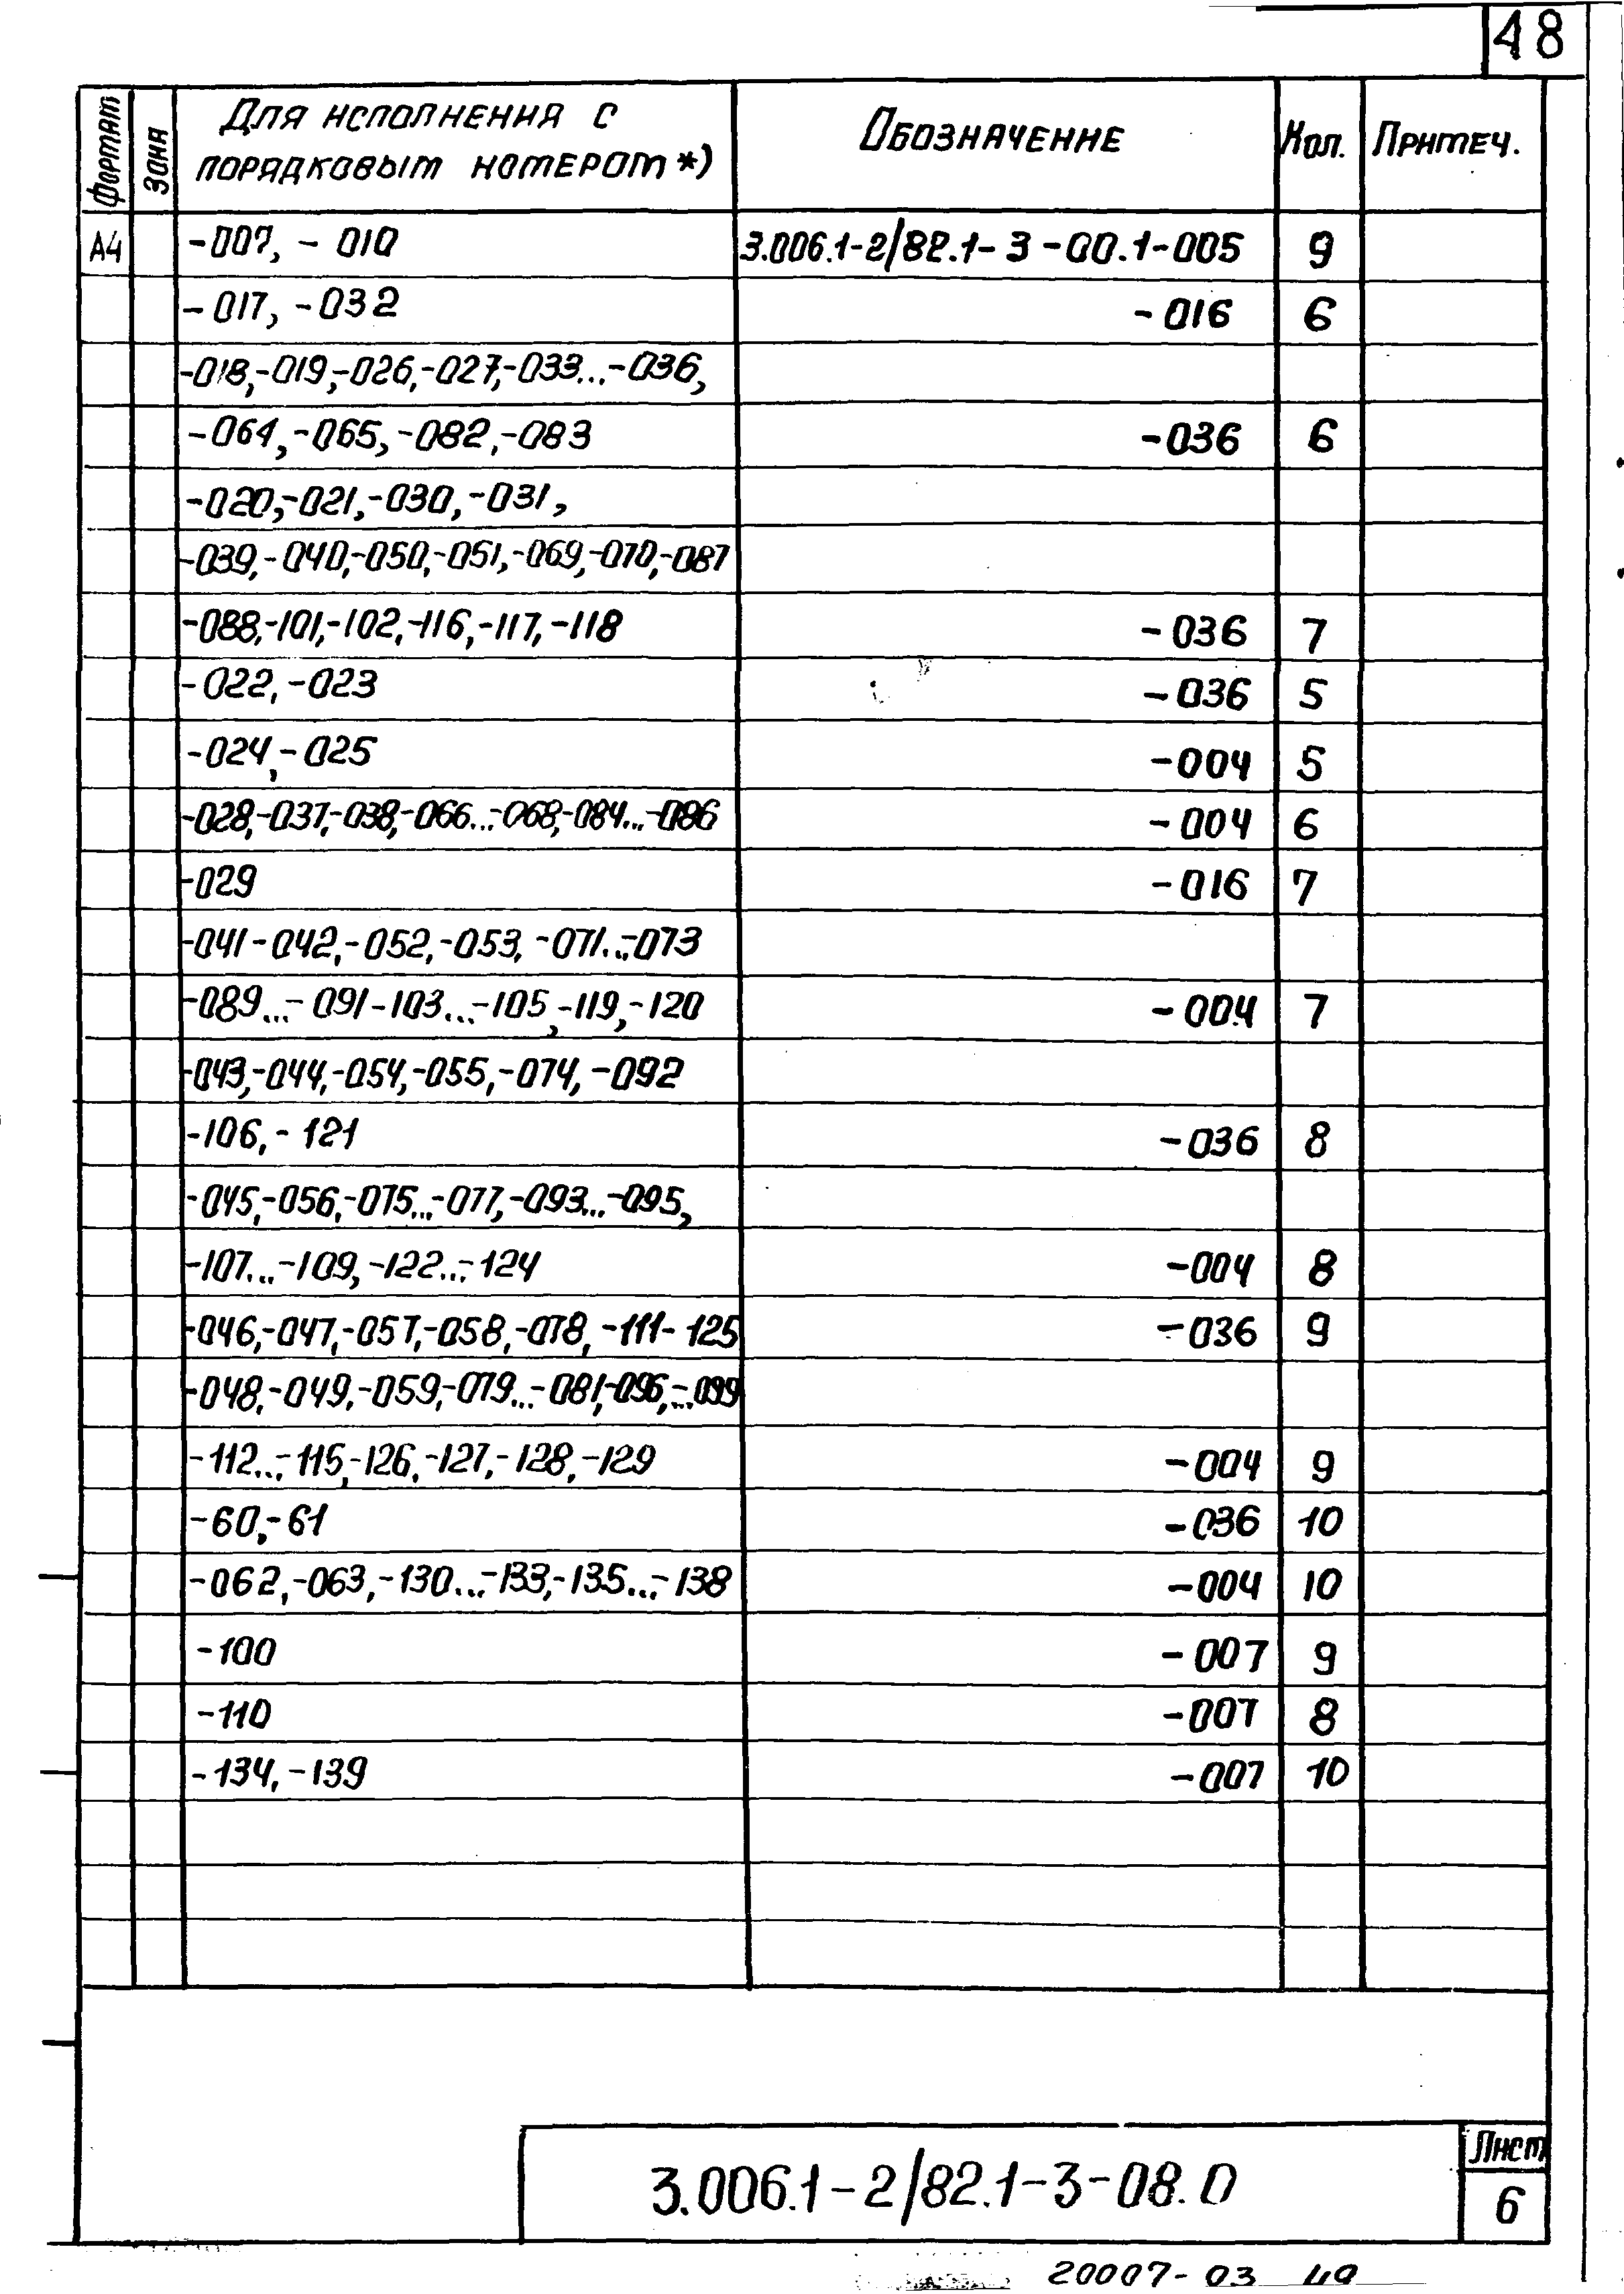 48
Формат Зона Для исполнения с порядковым номером *) Обозначение Кол. Примеч.
А4 -007, -010 3.006.1-2/82.1-3-00.1-005 9
-017, -032 -016 6
-018,-019,-026,-027,-033...-036,
-064,-065,-082,-083 -036 6
-020,-021,-030,-031,
-039,-040,-050,-051,-069,-070,-087
-088,-101,-102,-116,-117,-118 -036 7
-022,-023 -036 5
-024,-025 -004 5
-028,-037,-038,-066...-068,-084...-086 -004 6
-029 -016 7
-041-042,-052,-053,-071...-073
-089...-091-103...-105,-119,-120 -004 7
-043,-044,-054,-055,-074,-092
-106,-121 -036 8
-045,-056,-075...-077,-093...-095,
-107...-109,-122...-124 -004 8
-046,-047,-057,-058,-078,-111-125 -036 9
-048,-049,-059,-079...-081,-096,...-099
-112...-115,-126,-127,-128,-129 -004 9
-60,-61 -036 10
-062,-063,-130...-133,-135...-138 -004 10
-100 -007 9
-110 -007 8
-134,-139 -007 10
3.006.1-2/82.1-3-08.0
Лист
6
20007-03 49